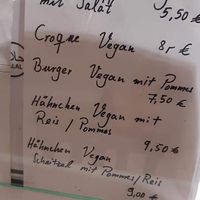 mit Salat
5,50 €
Croque Vegan 8,- €
Burger Vegan mit Pommes
7,50 €
Hähnchen Vegan mit
Reis / Pommes 9,50 €
Hähnchen Vegan
Schnitzel mit Pommes/Reis
9,00 €